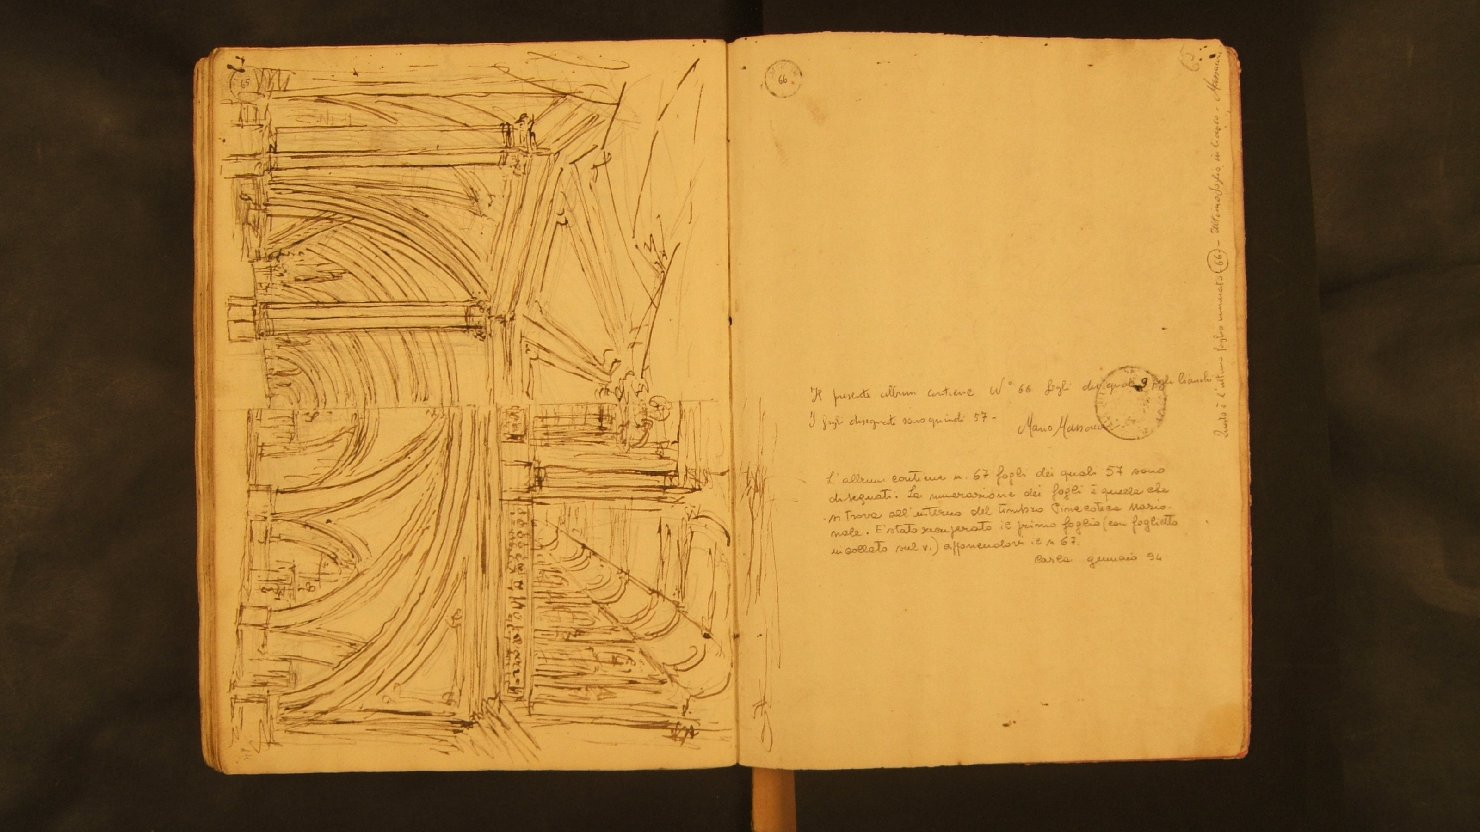 65
66
Il presente album contiene N° 66 fogli dei quali 9 fogli bianchi
I fogli disegnati sono quindi 57 -
Mario
L'album contiene n. 67 fogli dei quali 57 sono
disegnati. La numerazione dei fogli è quella che
si trova all'interno del timbro Pinacoteca Nazio-
nale. E' stato recuperato il primo foglio (con foglietto
incollato sul v.) apponendovi il n 67.
Carla gennaio 94
Questo è l'ultimo foglio numerato (66) -